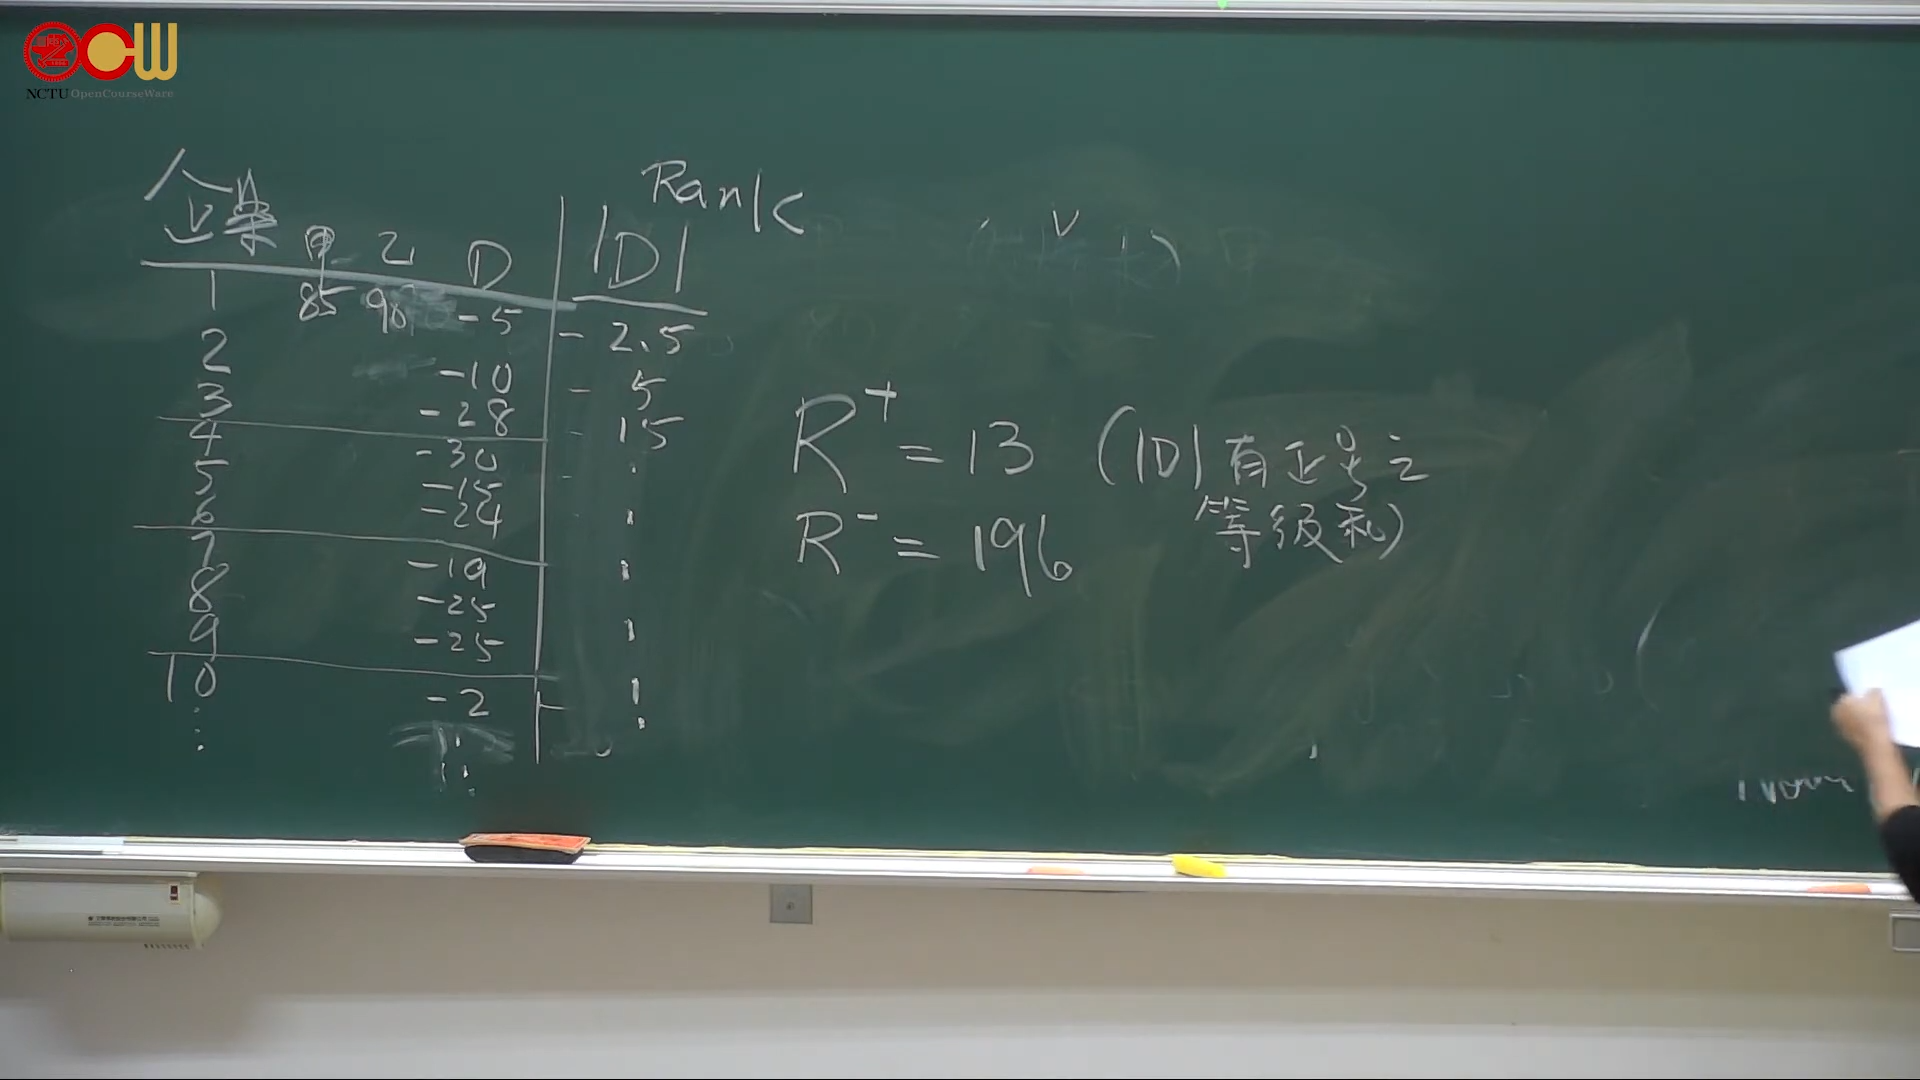 NCTU OpenCourseWare
Rank
企業 甲 乙 D |D|
1 85 90 -5 - 2.5
2 -10 - 5
3 -28 - 15
4 -30
5 -15
6 -24
7 -19
8 -25
9 -25
10 -2
R⁺ = 13 (|D| 有正号之
等级和)
R⁻ = 196